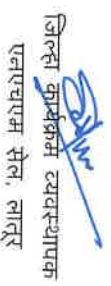 जिल्हा कार्यक्रम व्यवस्थापक
एनएचएम सेल, लातूर